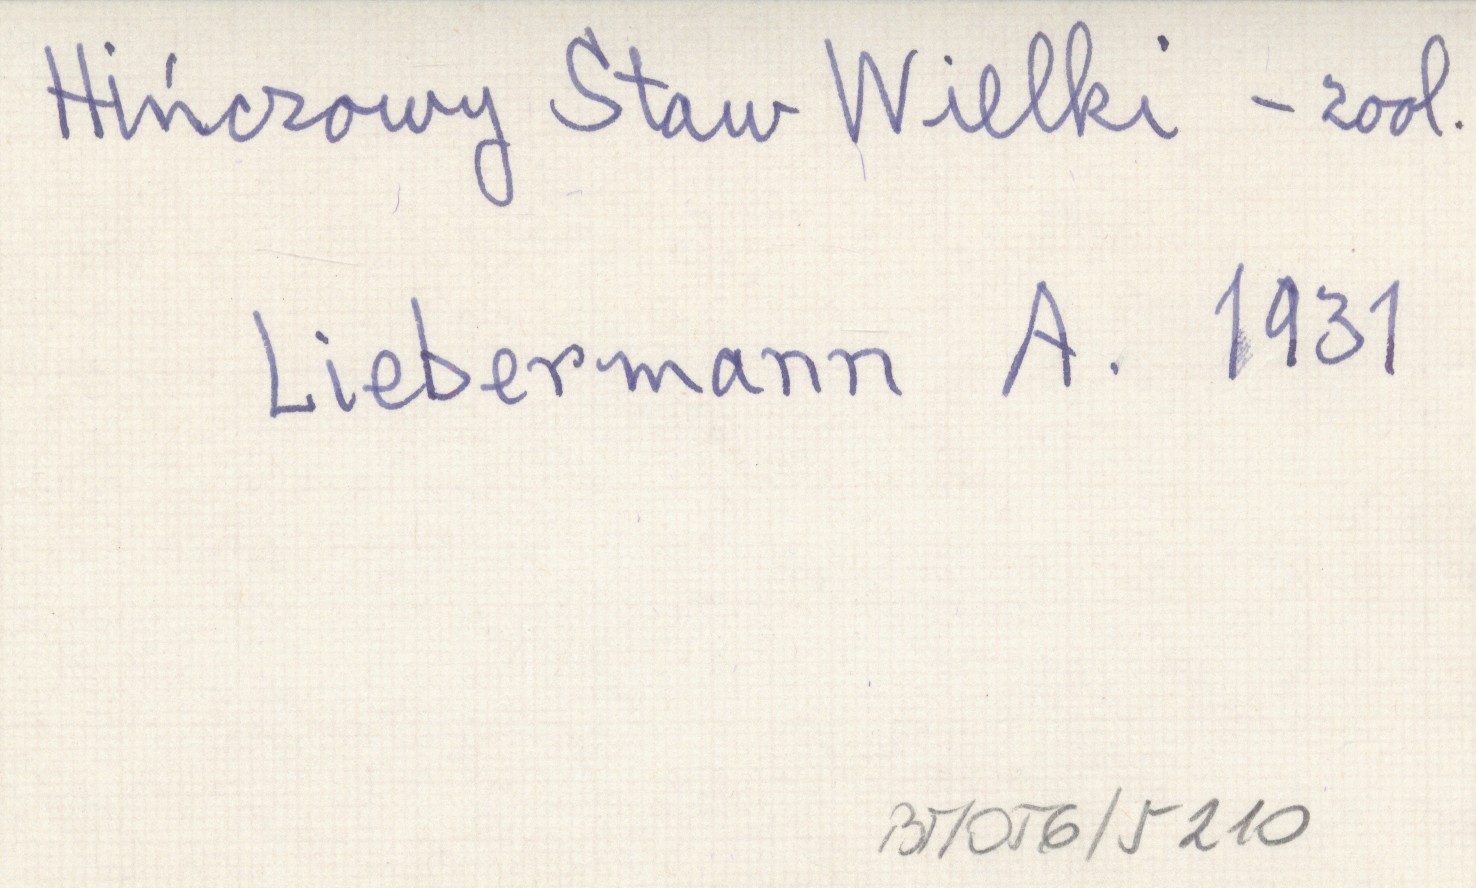 Hińczowy Staw Wielki - zool.
Liebermann A. 1931
BT/OT6/5210